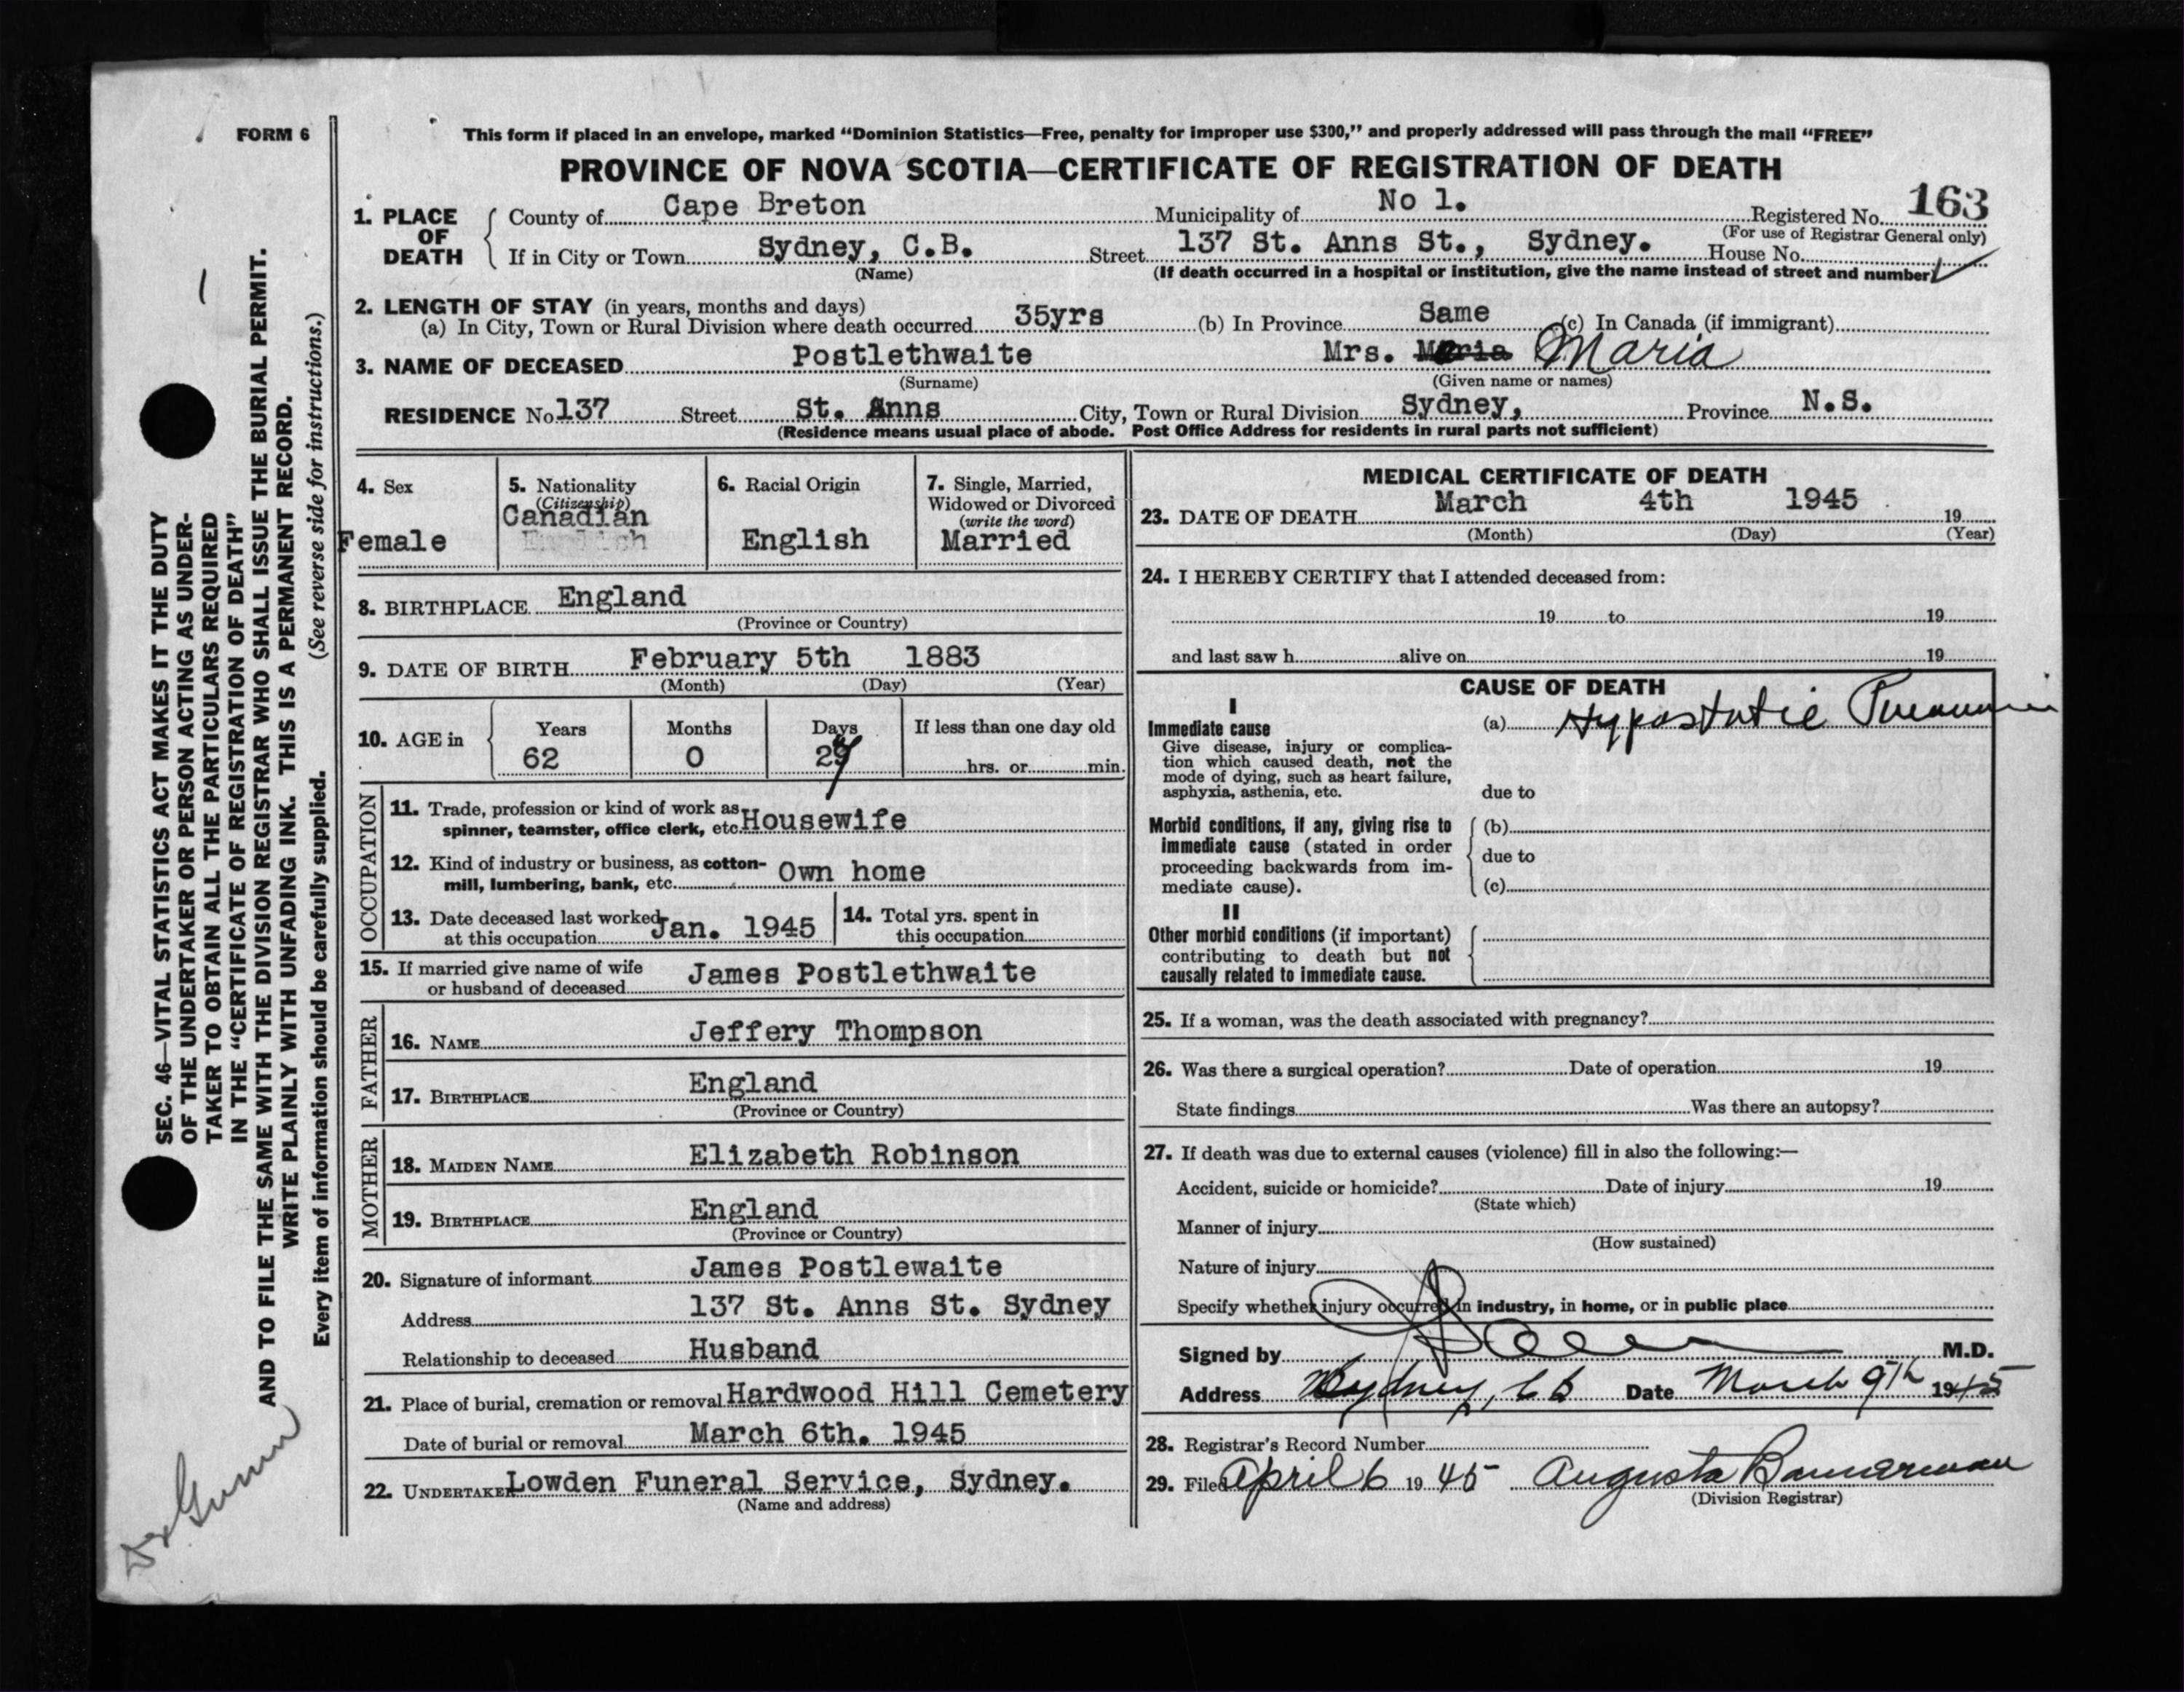 FORM 6
This form if placed in an envelope, marked “Dominion Statistics—Free, penalty for improper use $300,” and properly addressed will pass through the mail “FREE”
PROVINCE OF NOVA SCOTIA—CERTIFICATE OF REGISTRATION OF DEATH
1. PLACE OF DEATH
County of Cape Breton Municipality of No 1. Registered No. 163
(For use of Registrar General only)
If in City or Town Sydney, C.B. Street 137 St. Anns St., Sydney. House No.
(Name) (If death occurred in a hospital or institution, give the name instead of street and number)
2. LENGTH OF STAY (in years, months and days)
(a) In City, Town or Rural Division where death occurred 35yrs (b) In Province Same (c) In Canada (if immigrant)
3. NAME OF DECEASED Postlethwaite Mrs. Maria Maria
(Surname) (Given name or names)
RESIDENCE No 137 Street St. Anns City, Town or Rural Division Sydney, Province N.S.
(Residence means usual place of abode. Post Office Address for residents in rural parts not sufficient)
4. Sex
Female
5. Nationality
(Citizenship)
Canadian
English
6. Racial Origin
English
7. Single, Married,
Widowed or Divorced
(write the word)
Married
8. BIRTHPLACE England
(Province or Country)
9. DATE OF BIRTH February 5th 1883
(Month) (Day) (Year)
10. AGE in
Years Months Days If less than one day old
62 0 27 hrs. or min.
OCCUPATION
11. Trade, profession or kind of work as
spinner, teamster, office clerk, etc. Housewife
12. Kind of industry or business, as cotton-
mill, lumbering, bank, etc. Own home
13. Date deceased last worked
at this occupation Jan. 1945
14. Total yrs. spent in
this occupation
15. If married give name of wife
or husband of deceased James Postlethwaite
FATHER
16. NAME Jeffery Thompson
17. BIRTHPLACE England
(Province or Country)
MOTHER
18. MAIDEN NAME Elizabeth Robinson
19. BIRTHPLACE England
(Province or Country)
20. Signature of informant James Postlewaite
Address 137 St. Anns St. Sydney
Relationship to deceased Husband
21. Place of burial, cremation or removal Hardwood Hill Cemetery
Date of burial or removal March 6th. 1945
22. UNDERTAKER Lowden Funeral Service, Sydney.
(Name and address)
MEDICAL CERTIFICATE OF DEATH
23. DATE OF DEATH March 4th 1945 19
(Month) (Day) (Year)
24. I HEREBY CERTIFY that I attended deceased from:
19 to 19
and last saw h alive on 19
CAUSE OF DEATH
I
Immediate cause (a) Hypostatic Pneumonia
Give disease, injury or complica-
tion which caused death, not the
mode of dying, such as heart failure,
asphyxia, asthenia, etc. due to
Morbid conditions, if any, giving rise to (b)
immediate cause (stated in order
proceeding backwards from im- due to
mediate cause). (c)
II
Other morbid conditions (if important)
contributing to death but not
causally related to immediate cause.
25. If a woman, was the death associated with pregnancy?
26. Was there a surgical operation? Date of operation 19
State findings Was there an autopsy?
27. If death was due to external causes (violence) fill in also the following:—
Accident, suicide or homicide? Date of injury 19
(State which)
Manner of injury
(How sustained)
Nature of injury
Specify whether injury occurred in industry, in home, or in public place
Signed by M.D.
Address Sydney, C B Date March 9th 1945
28. Registrar's Record Number
29. Filed April 6 19 45 Augusta Bannerman
(Division Registrar)
SEC. 46—VITAL STATISTICS ACT MAKES IT THE DUTY
OF THE UNDERTAKER OR PERSON ACTING AS UNDER-
TAKER TO OBTAIN ALL THE PARTICULARS REQUIRED
IN THE “CERTIFICATE OF REGISTRATION OF DEATH”
AND TO FILE THE SAME WITH THE DIVISION REGISTRAR WHO SHALL ISSUE THE BURIAL PERMIT.
WRITE PLAINLY WITH UNFADING INK. THIS IS A PERMANENT RECORD.
Every item of information should be carefully supplied. (See reverse side for instructions.)